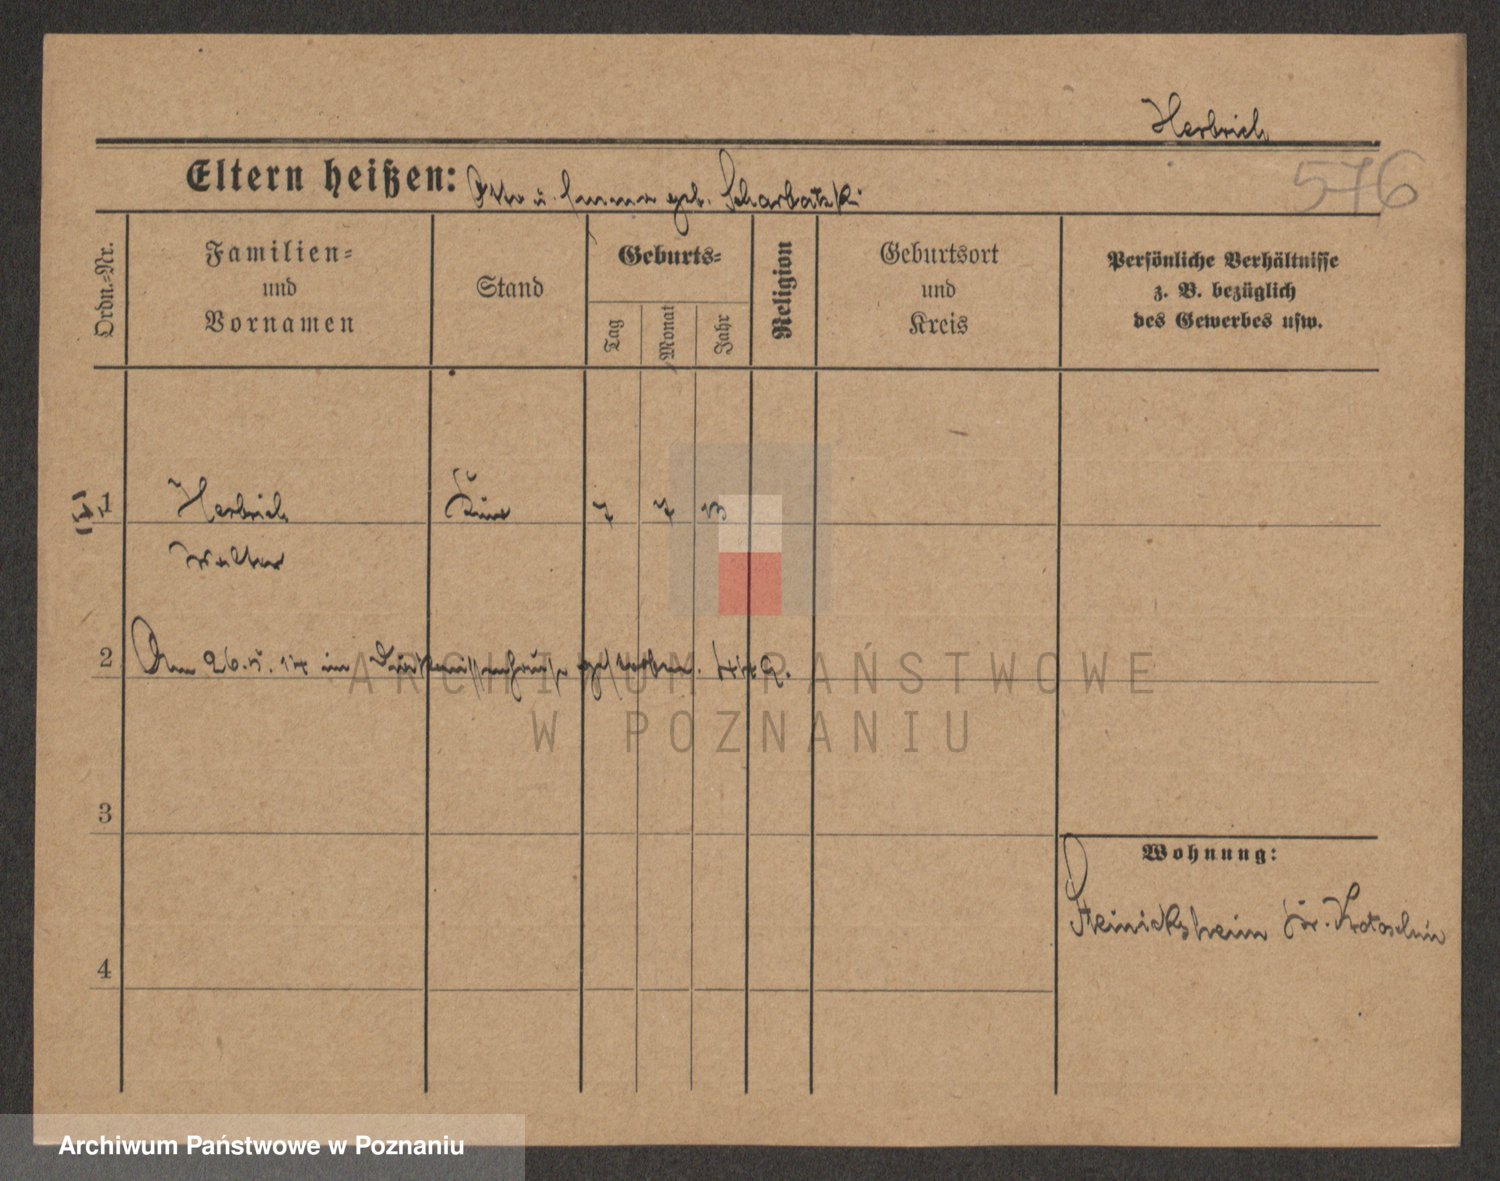 Herbrich
576
Eltern heißen: Otto u. Emma geb. Scharbatzki
Ordn.=Nr.
Familien=
und
Vornamen
Stand
Geburts=
Tag
Monat
Jahr
Religion
Geburtsort
und
Kreis
Persönliche Verhältnisse
z. B. bezüglich
des Gewerbes usw.
1
Herbrich
Kind
7
7
13
Walter
2
Am 26. 5. 14 im Diakonissenhause gestorben.
3
4
Wohnung:
Steinicksheim Kr. Krotoschin
ARCHIWUM PAŃSTWOWE
W POZNANIU
Archiwum Państwowe w Poznaniu